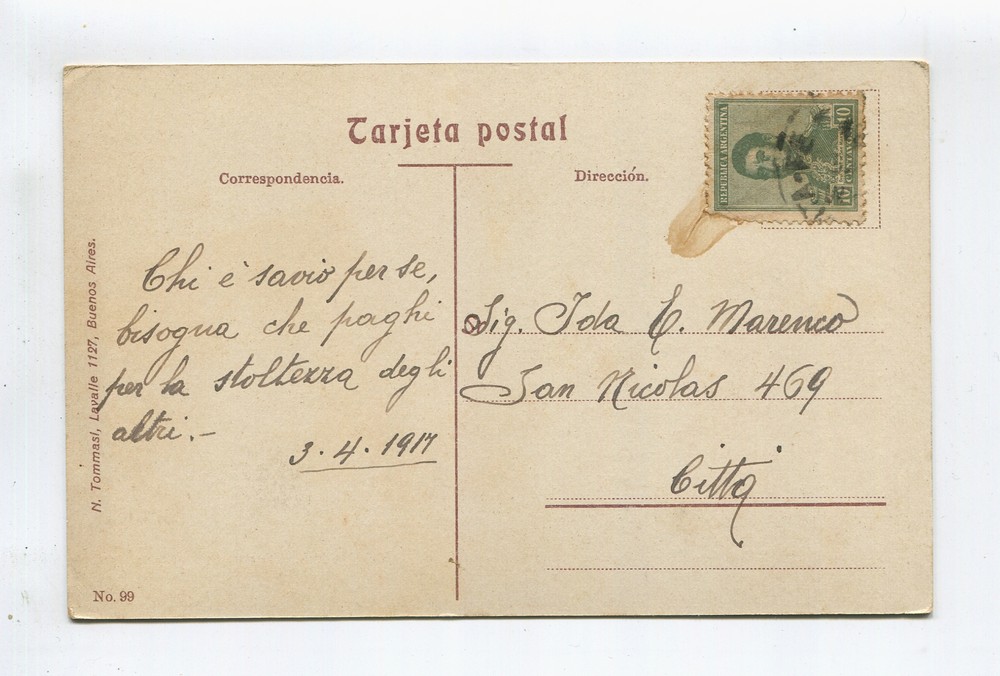 Tarjeta postal
Correspondencia.
Dirección.
REPUBLICA ARGENTINA
10
CENTAVOS
10
N. Tommasi, Lavalle 1127, Buenos Aires.
Chi è savio per se,
bisogna che paghi
per la stoltezza degli
altri.-
3.4.1917
Sig. Ida E. Marenco
San Nicolas 469
Città
No. 99